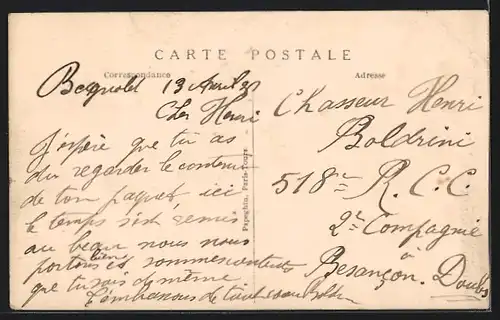 CARTE POSTALE
Correspondance
Adresse
Bagnolet 13 Avril 3
Cher Henri
J'espère que tu as
du regarder le contenu
de ton paquet, ici
le temps s'est remis
au beau nous nous
portons bien et sommes contents
que tu sois de même
t'embrassons de tout
Chasseur Henri
Boldrini
518e R. C. C.
2e Compagnie
à
Besançon. Doubs
Papeghin, Paris-Tours